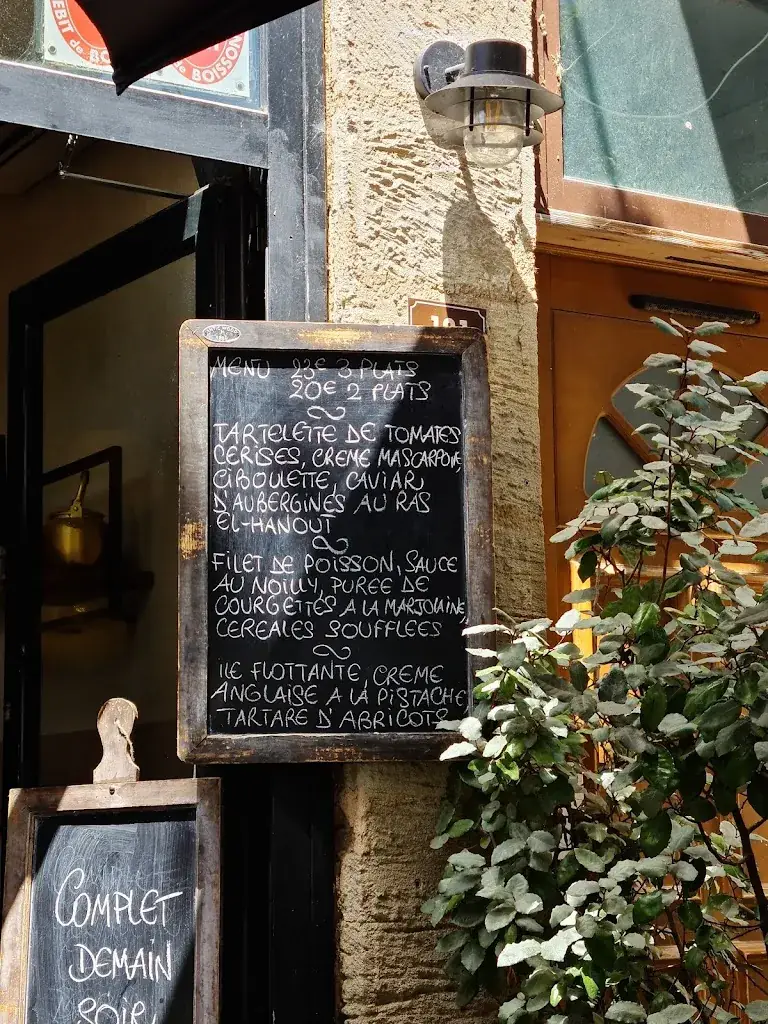 DEBIT de BOI
de BOISSON
101
MENU 23€ 3 PLATS
20€ 2 PLATS
TARTELETTE DE TOMATES
CERISES, CREME MASCARPONE,
CIBOULETTE, CAVIAR
D'AUBERGINES AU RAS
EL-HANOUT
FILET DE POISSON, SAUCE
AU NOILLY, PUREE DE
COURGETTES A LA MARJOLAINE,
CEREALES SOUFFLEES
ILE FLOTTANTE, CREME
ANGLAISE A LA PISTACHE
TARTARE D'ABRICOTS
COMPLET
DEMAIN
SOIR